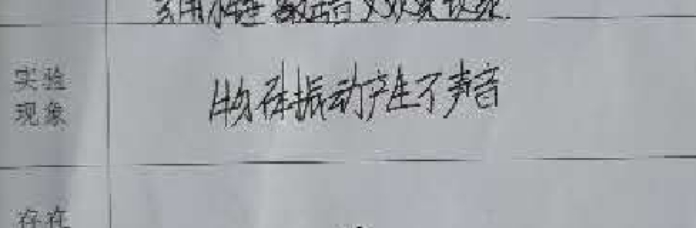 实验
现象
物体振动产生了声音
存在